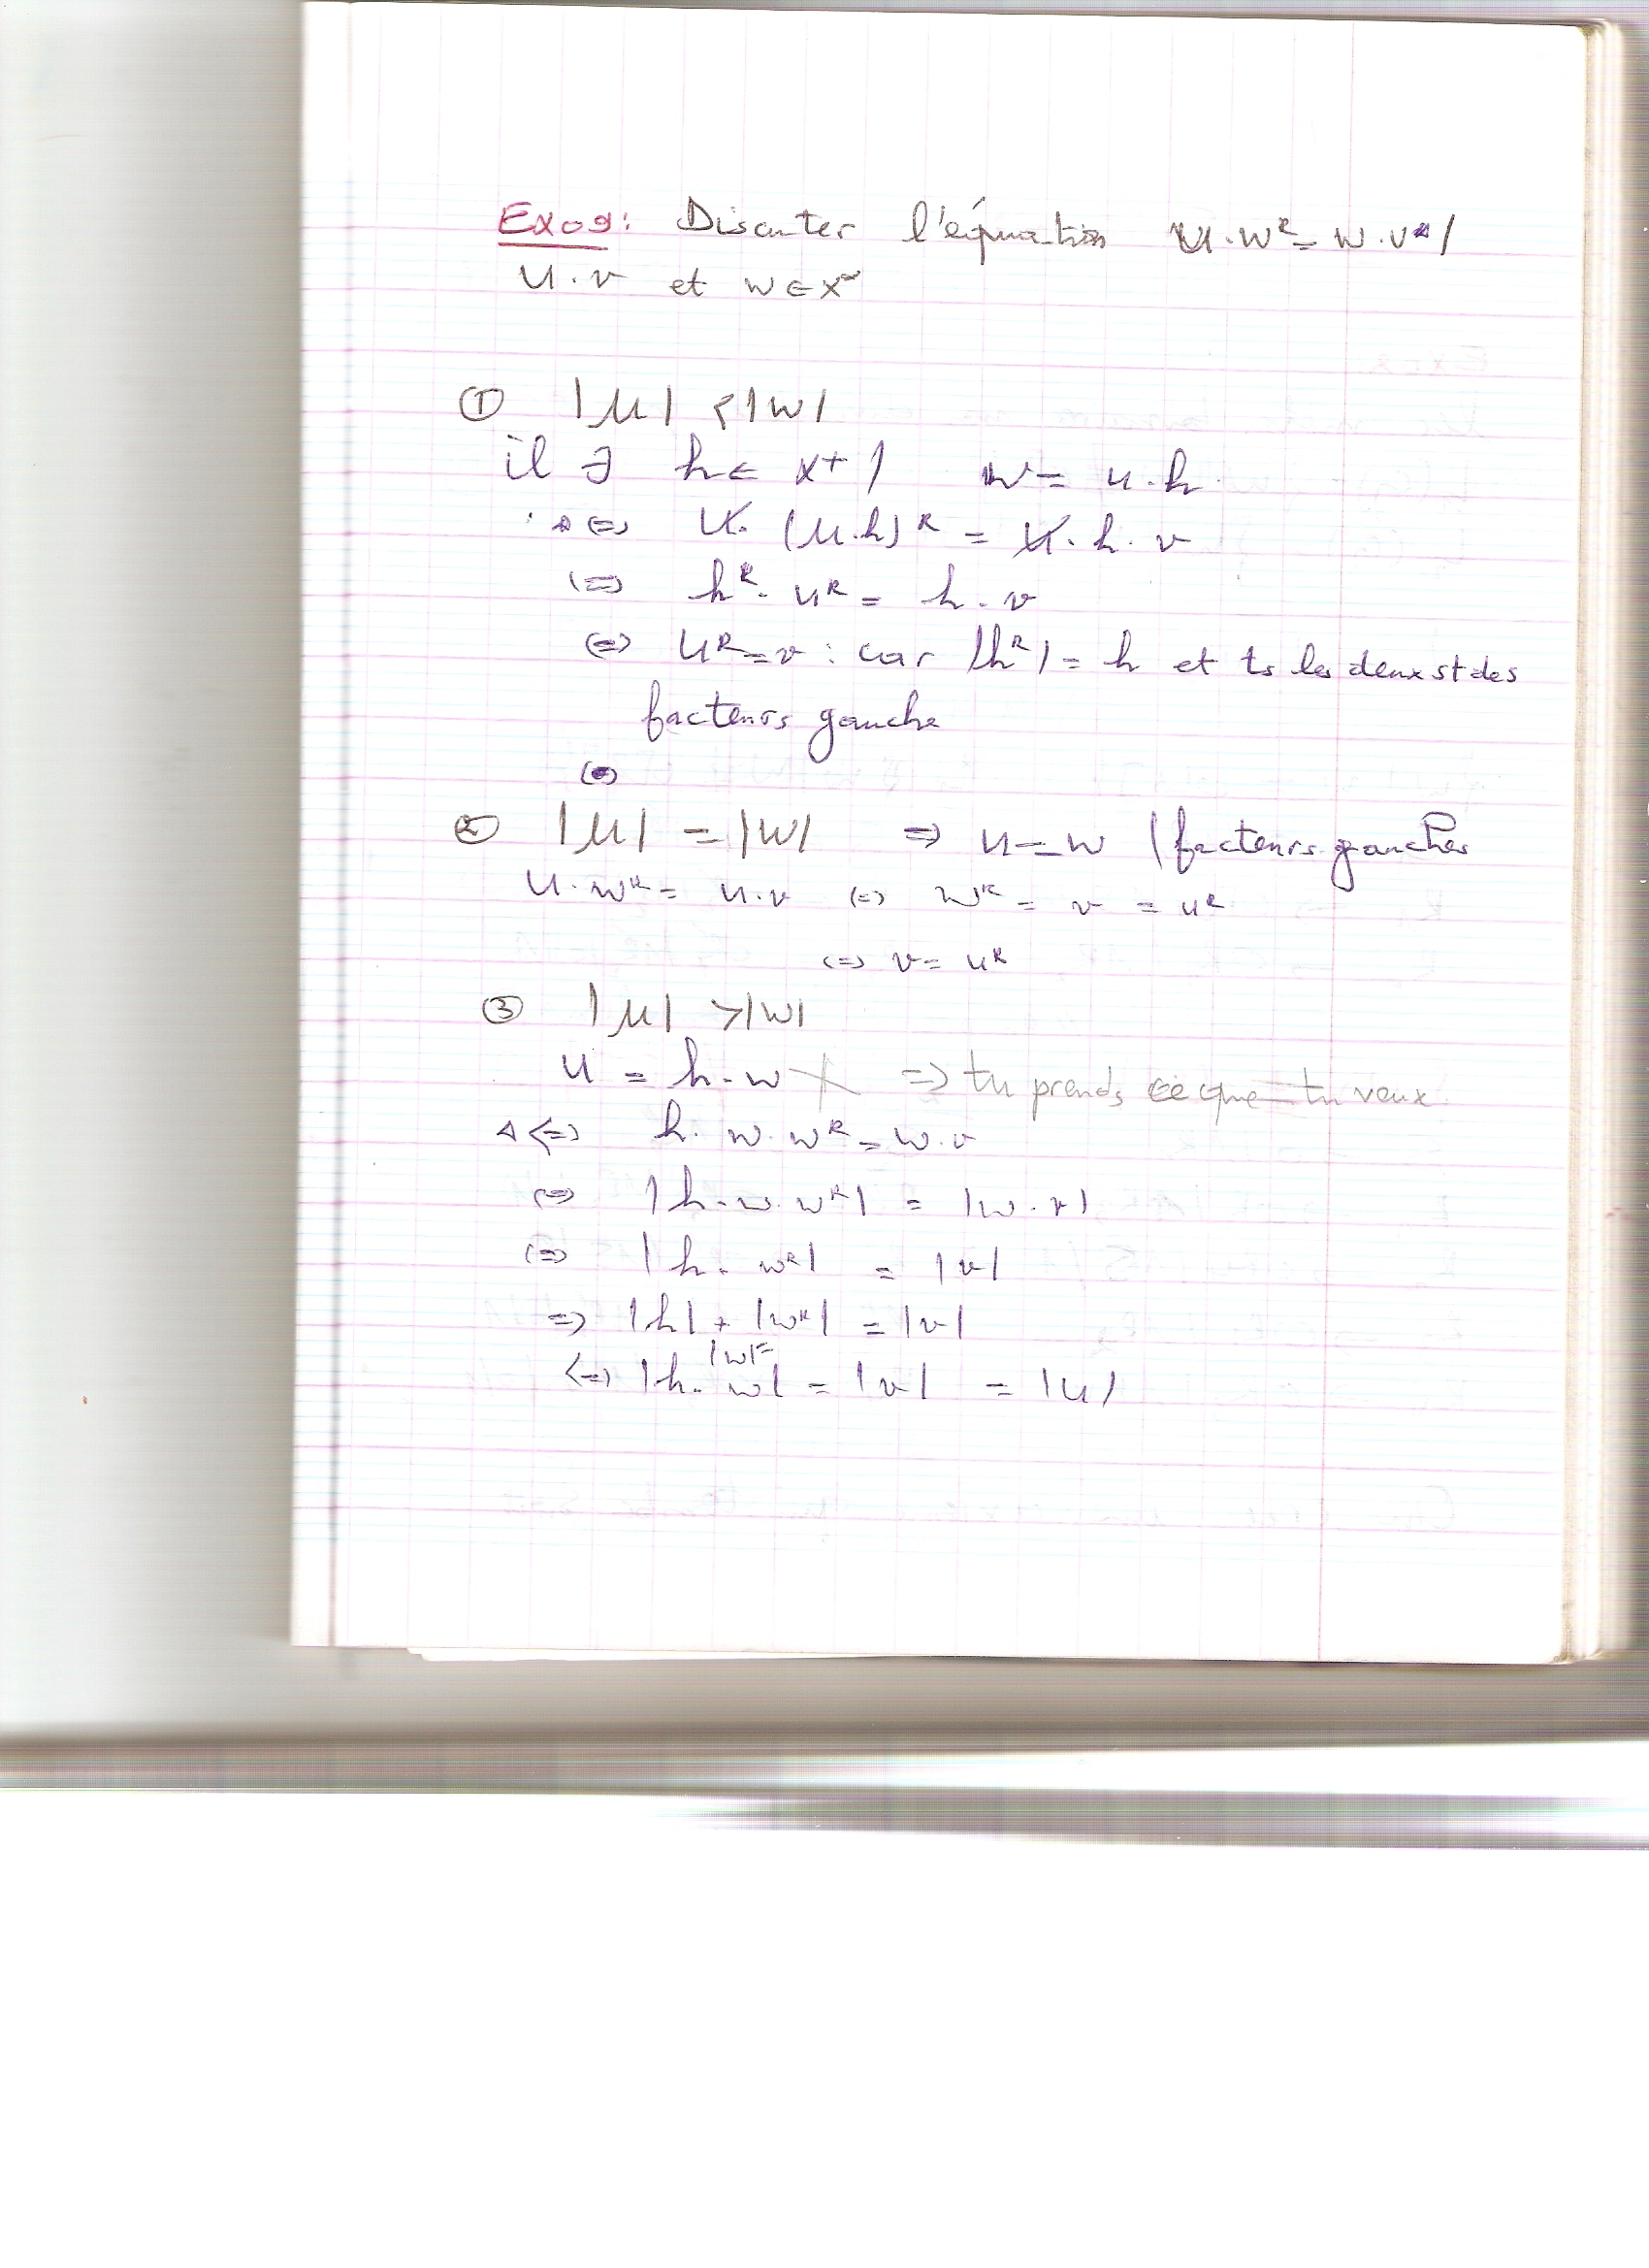 Exo9: Discuter l'équation U.w^R = w.v /
U.v et w ∈ X*
① |u| < |w|
il ∃ h ∈ X+ / w = u.h
⇔ u.(u.h)^R = u.h.v
⇔ h^R.u^R = h.v
⇔ u^R = v : car |h^R| = h et ts les deux st des
facteurs gauche
⇔
② |u| = |w| ⇒ u = w (facteurs gauches
U.w^R = u.v ⇔ w^R = v = u^R
⇔ v = u^R
③ |u| > |w|
u = h.w ⇒ tu prends ce que tu veux
⇔ h.w.w^R = w.v
⇔ |h.w.w^R| = |w.v|
⇔ |h.w^R| = |v|
⇒ |h| + |w^R| = |v|
|w|=
⇔ |h.w| = |v| = |u|